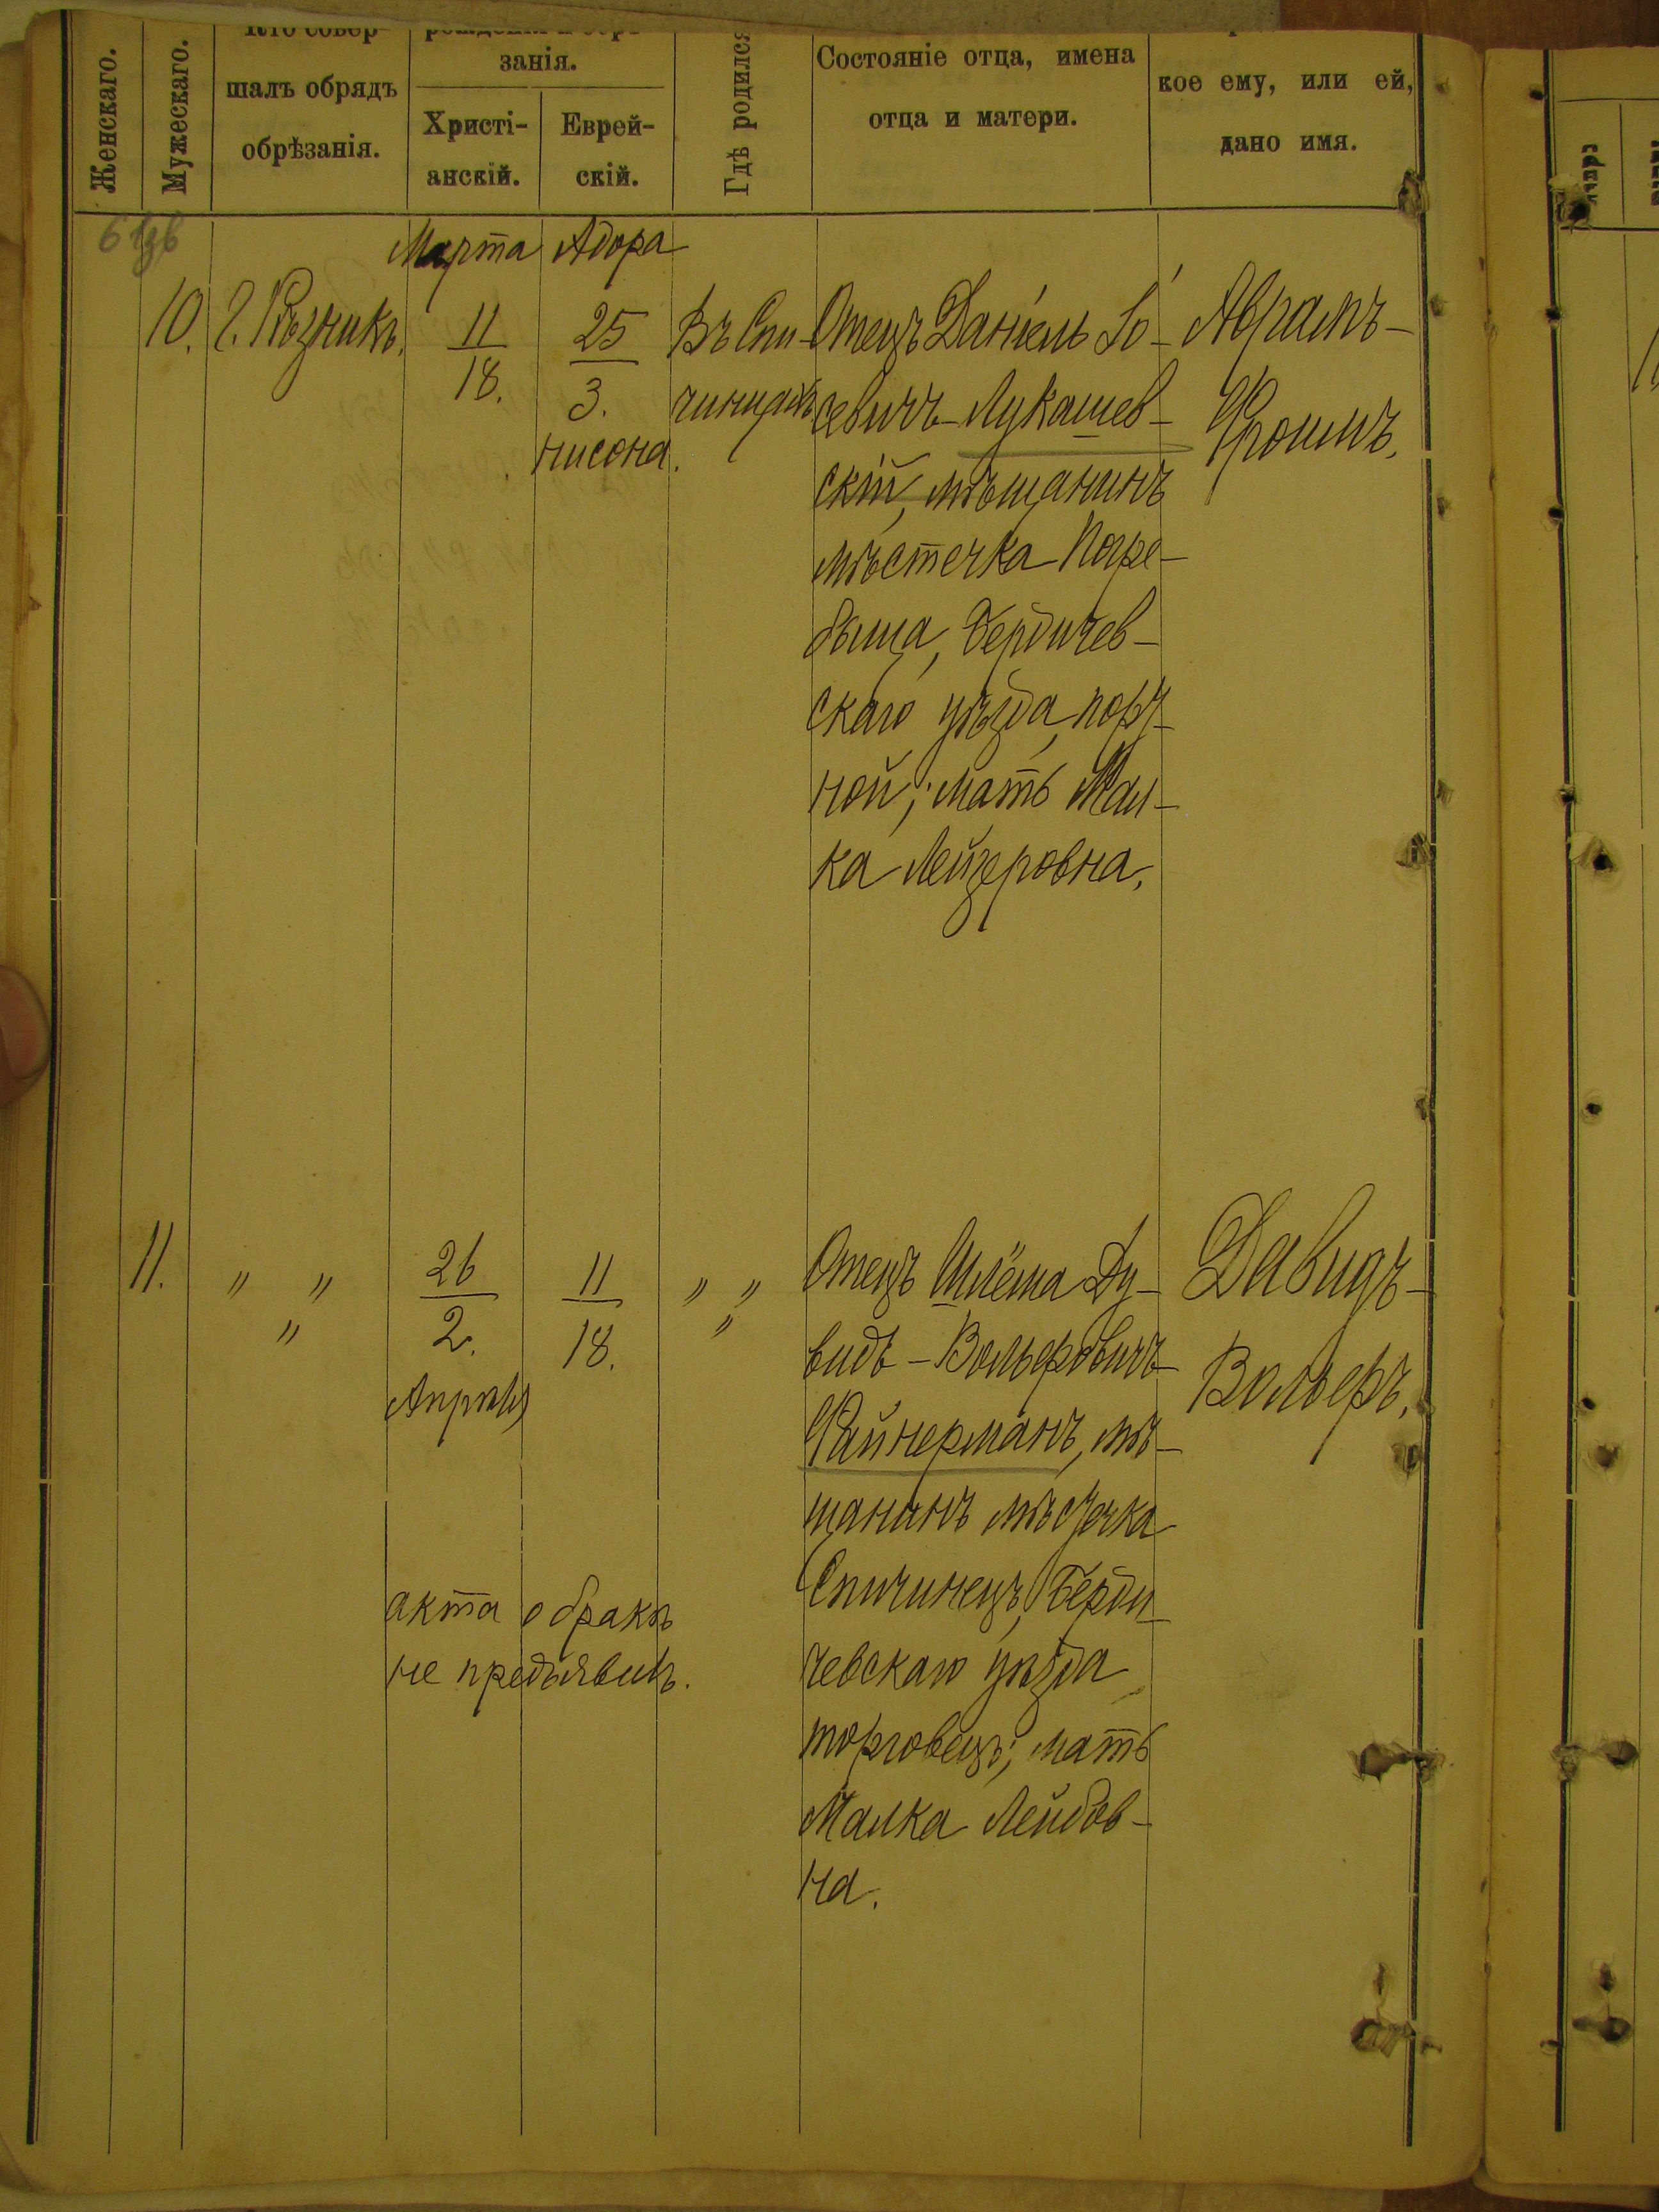 Женскаго.
Мужескаго.
Кто совер-
шалъ обрядъ
обрѣзанія.
занія.
Христі-
анскій.
Еврей-
скій.
Гдѣ родился
Состояніе отца, имена
отца и матери.
кое ему, или ей,
дано имя.
Марта Адора
10. Г. Рѣзникъ.
11
18.
25
3.
нисона.
Въ Спи-
чинцахъ
Отецъ Даніель Іо-
севичъ Лукашев-
скій, мѣщанинъ
мѣстечка Погре-
быща, Бердичев-
скаго уѣзда, порт-
ной; мать Мал-
ка Лейзеровна.
Аврамъ-
Фроимъ.
11. " "
"
26
2.
Апрѣля
11
18.
" "
"
Отецъ Шлёма Ду-
видъ-Вольфовичъ
Файнерманъ, мѣ-
щанинъ мѣстечка
Спичинецъ, Берди-
чевскаго уѣзда
торговецъ; мать
Малка Лейбов-
на.
Давидъ-
Вольфъ.
акта о бракѣ
не предъявилъ.